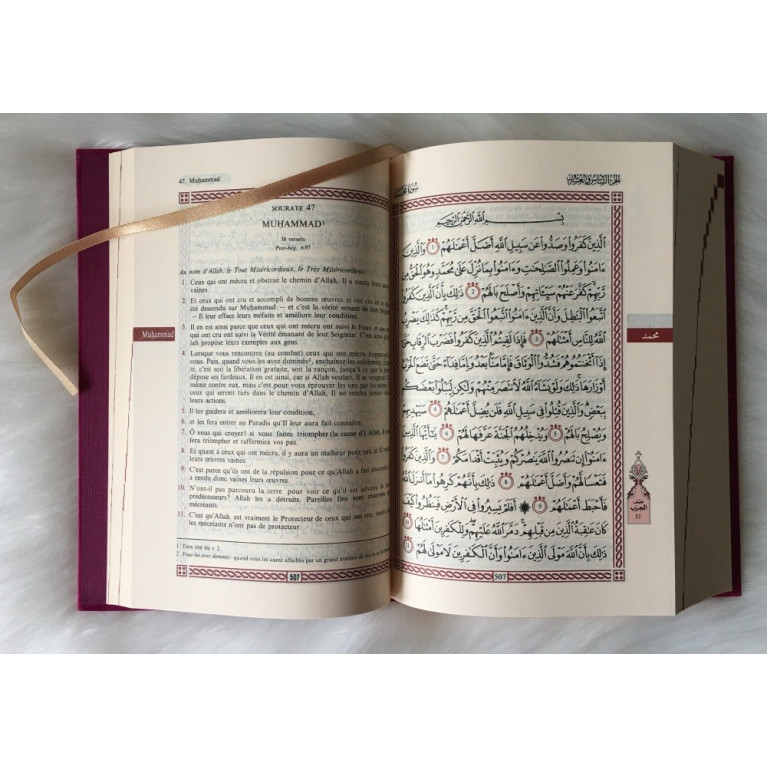 47. Muḥammad
SOURATE 47
MUḤAMMAD¹
38 versets
Post-hég. n°95
Au nom d'Allah, le Tout Miséricordieux, le Très Miséricordieux.
1. Ceux qui ont mécru et obstrué le chemin d'Allah, Il a rendu leurs
vaines.
2. Et ceux qui ont cru et accompli de bonnes œuvres et ont cru en ce qui
été descendu sur Muḥammad — et c'est la vérité venant de leur Seigneur
— Il leur efface leurs méfaits et améliore leur condition.
3. Il en est ainsi parce que ceux qui ont mécru ont suivi le Faux et que ceux
qui ont cru ont suivi la Vérité émanant de leur Seigneur. C'est ainsi qu'Al-
lah propose leurs exemples aux gens.
4. Lorsque vous rencontrez (au combat) ceux qui ont mécru frappez-en les
cous. Puis, quand vous les avez dominés², enchaînez-les solidement. Ensui-
te, c'est soit la libération gratuite, soit la rançon, jusqu'à ce que la guerre
dépose ses fardeaux. Il en est ainsi, car si Allah voulait, Il se vengerait Lui-
même contre eux, mais c'est pour vous éprouver les uns par les autres. Et
ceux qui seront tués dans le chemin d'Allah, Il ne rendra jamais vaines
leurs actions.
5. Il les guidera et améliorera leur condition,
6. et les fera entrer au Paradis qu'Il leur aura fait connaître.
7. Ô vous qui croyez! si vous faites triompher (la cause d') Allah, Il vous
fera triompher et raffermira vos pas.
8. Et quant à ceux qui ont mécru, il y aura un malheur pour eux, et Il rendra
leurs œuvres vaines.
9. C'est parce qu'ils ont de la répulsion pour ce qu'Allah a fait descendre. Il
a rendu donc vaines leurs œuvres.
10. N'ont-ils pas parcouru la terre pour voir ce qu'il est advenu de leurs
prédécesseurs? Allah les a détruits. Pareilles fins sont réservées aux
mécréants.
11. C'est qu'Allah est vraiment le Protecteur de ceux qui ont cru, tandis que
les mécréants n'ont pas de protecteur.
1 Titre tiré du v. 2.
2 Pour les avez dominés: quand vous les aurez affaiblis par un grand nombre de
507
Muḥammad
الجزء السادس والعشرون
سورة محمد
بسم الله الرحمن الرحيم
الَّذِينَ كَفَرُوا وَصَدُّوا عَن سَبِيلِ اللَّهِ أَضَلَّ أَعْمَالَهُمْ ١ وَالَّذِينَ
ءَامَنُوا وَعَمِلُوا الصَّالِحَاتِ وَءَامَنُوا بِمَا نُزِّلَ عَلَى مُحَمَّدٍ وَهُوَ الْحَقُّ مِن
رَّبِّهِمْ كَفَّرَ عَنْهُمْ سَيِّئَاتِهِمْ وَأَصْلَحَ بَالَهُمْ ٢ ذَلِكَ بِأَنَّ الَّذِينَ كَفَرُوا
اتَّبَعُوا الْبَاطِلَ وَأَنَّ الَّذِينَ ءَامَنُوا اتَّبَعُوا الْحَقَّ مِن رَّبِّهِمْ كَذَلِكَ يَضْرِبُ
اللَّهُ لِلنَّاسِ أَمْثَالَهُمْ ٣ فَإِذَا لَقِيتُمُ الَّذِينَ كَفَرُوا فَضَرْبَ الرِّقَابِ حَتَّى
إِذَا أَثْخَنتُمُوهُمْ فَشُدُّوا الْوَثَاقَ فَإِمَّا مَنًّا بَعْدُ وَإِمَّا فِدَاءً حَتَّى تَضَعَ الْحَرْبُ
أَوْزَارَهَا ذَلِكَ وَلَوْ يَشَاءُ اللَّهُ لَانتَصَرَ مِنْهُمْ وَلَكِن لِّيَبْلُوَا بَعْضَكُم
بِبَعْضٍ وَالَّذِينَ قُتِلُوا فِي سَبِيلِ اللَّهِ فَلَن يُضِلَّ أَعْمَالَهُمْ ٤ سَيَهْدِيهِمْ
وَيُصْلِحُ بَالَهُمْ ٥ وَيُدْخِلُهُمُ الْجَنَّةَ عَرَّفَهَا لَهُمْ ٦ يَا أَيُّهَا الَّذِينَ
ءَامَنُوا إِن تَنصُرُوا اللَّهَ يَنصُرْكُمْ وَيُثَبِّتْ أَقْدَامَكُمْ ٧ وَالَّذِينَ كَفَرُوا
فَتَعْسًا لَّهُمْ وَأَضَلَّ أَعْمَالَهُمْ ٨ ذَلِكَ بِأَنَّهُمْ كَرِهُوا مَا أَنزَلَ اللَّهُ
فَأَحْبَطَ أَعْمَالَهُمْ ٩ أَفَلَمْ يَسِيرُوا فِي الْأَرْضِ فَيَنظُرُوا كَيْفَ
كَانَ عَاقِبَةُ الَّذِينَ مِن قَبْلِهِمْ دَمَّرَ اللَّهُ عَلَيْهِمْ وَلِلْكَافِرِينَ أَمْثَالُهَا ١٠
ذَلِكَ بِأَنَّ اللَّهَ مَوْلَى الَّذِينَ ءَامَنُوا وَأَنَّ الْكَافِرِينَ لَا مَوْلَى لَهُمْ ١١
507
محمد
نصف
الحزب
51